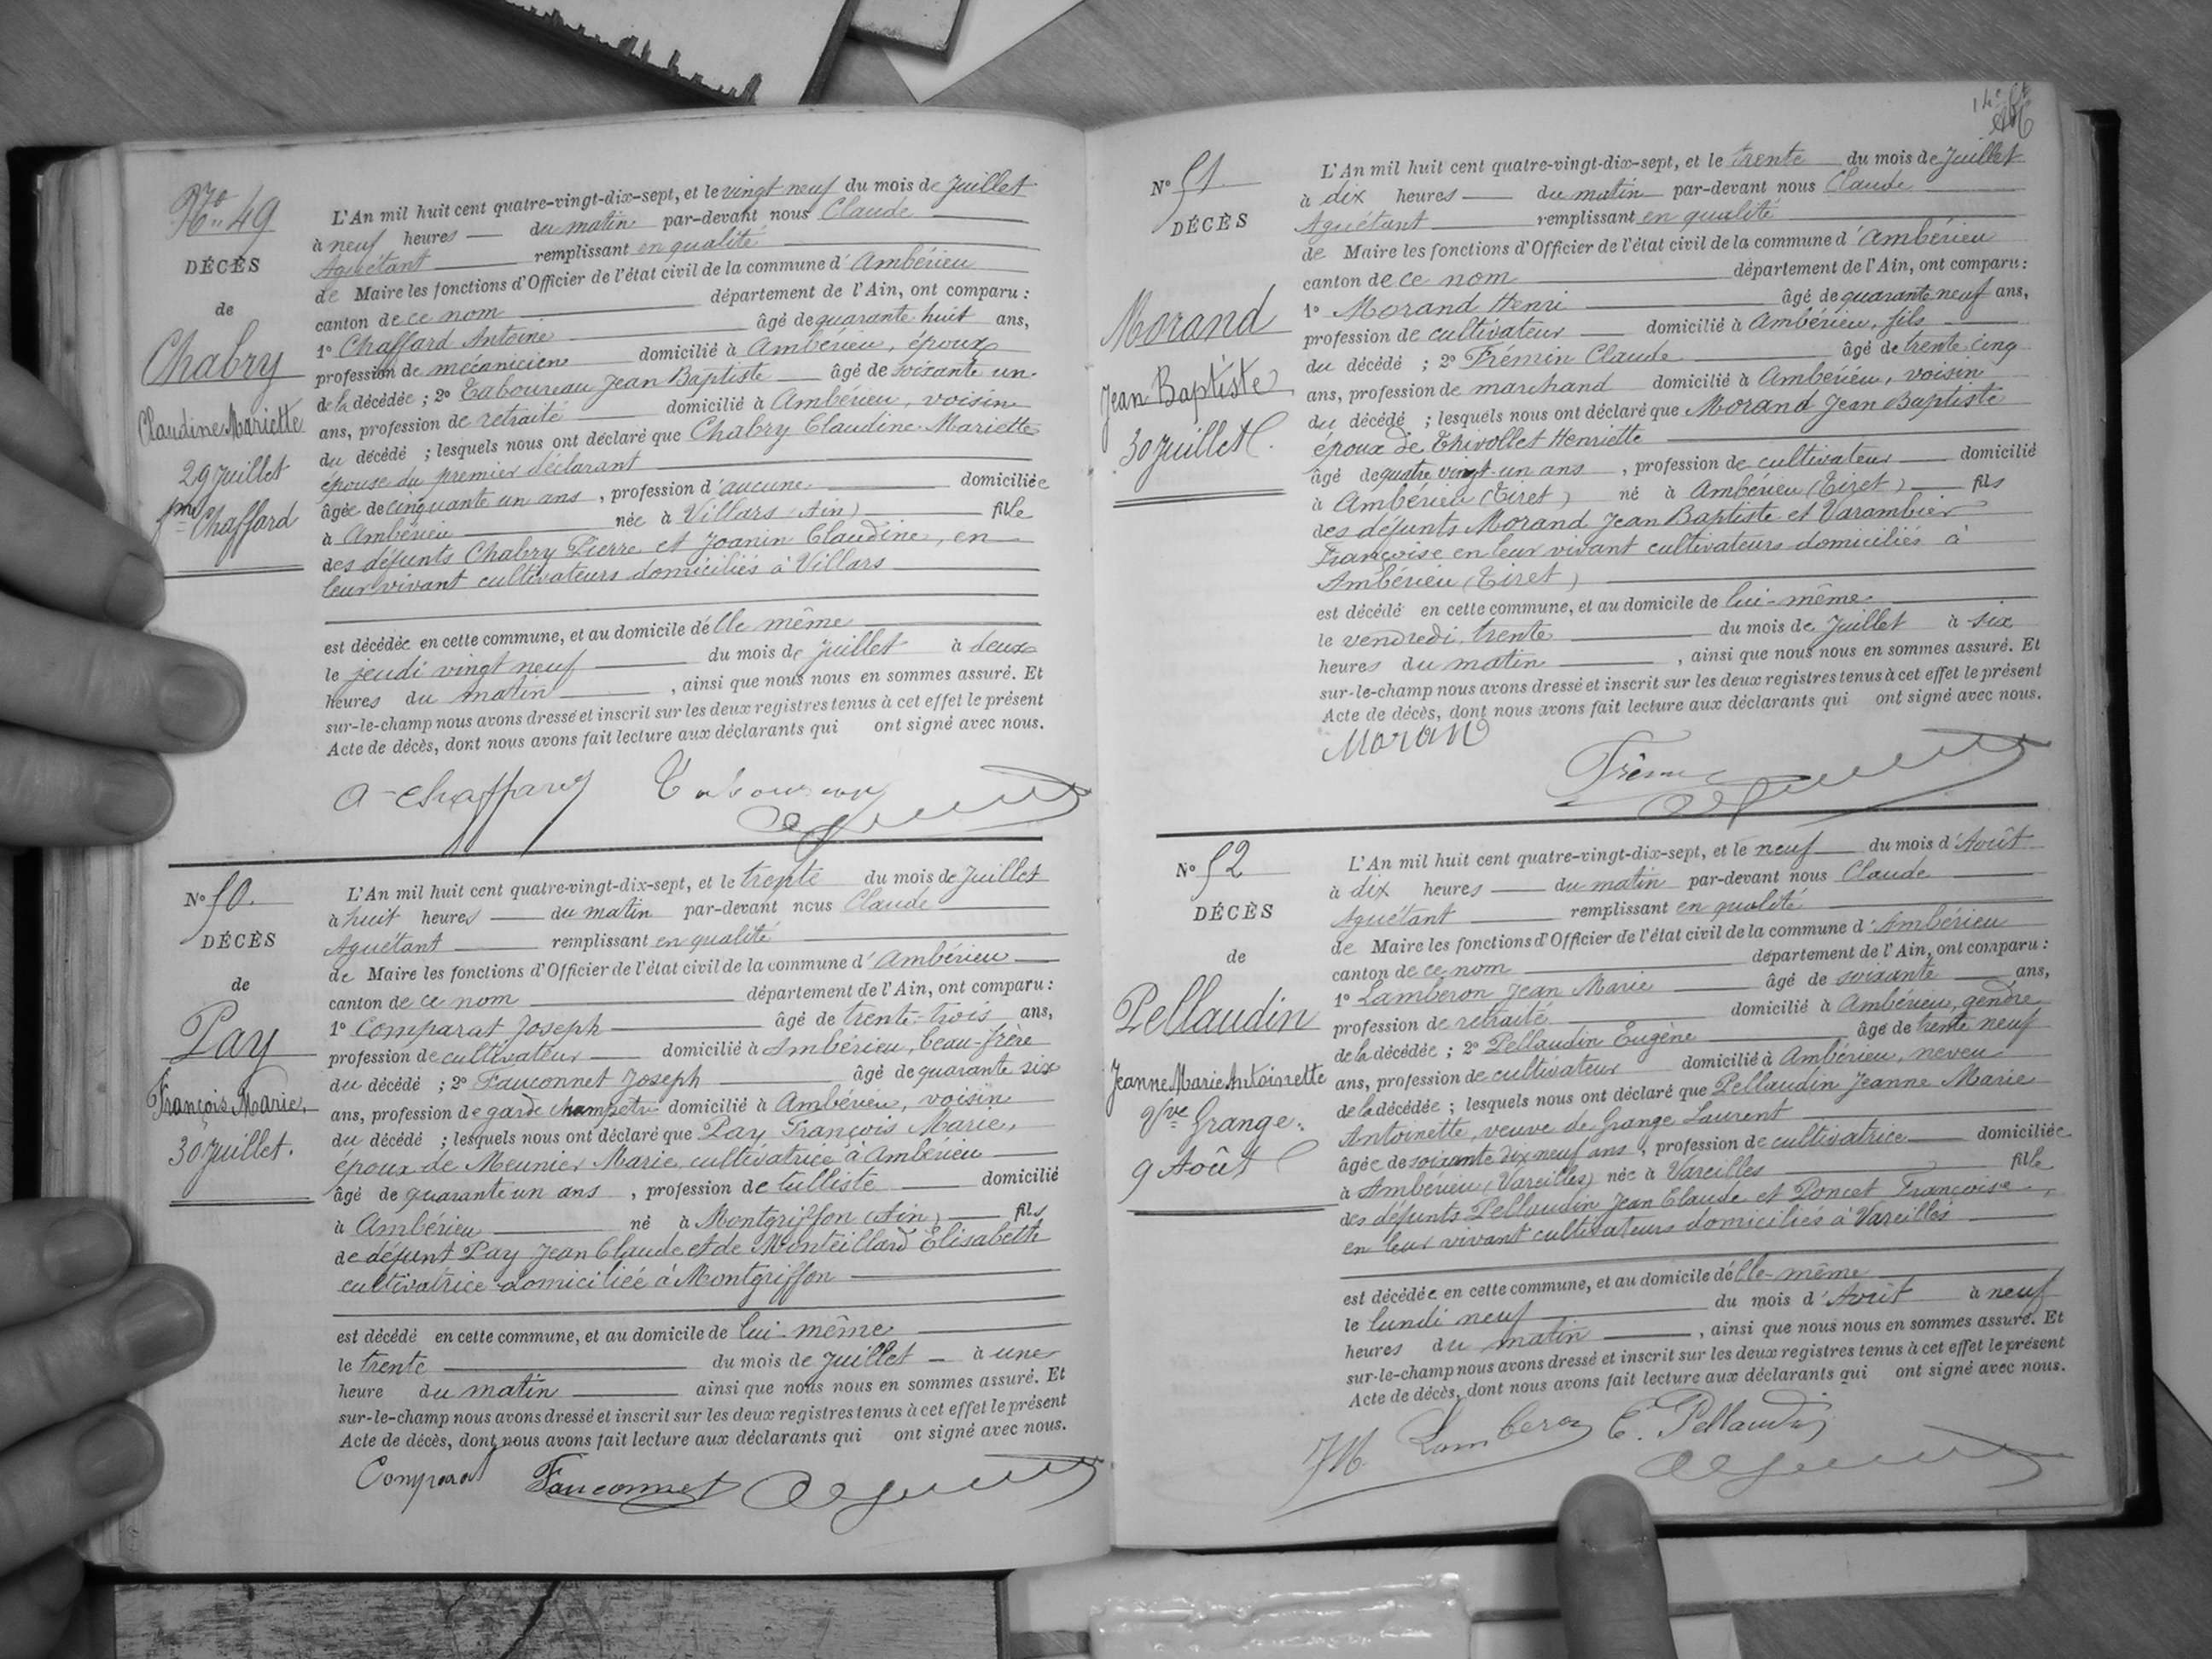 No 49
DÉCÈS
de
Chabry
Claudine Mariette
29 Juillet
fme Chaffard
L'An mil huit cent quatre-vingt-dix-sept, et le vingt neuf du mois de Juillet
à neuf heures du matin par-devant nous Claude
Aguétant remplissant en qualité
de Maire les fonctions d'Officier de l'état civil de la commune d'Ambérieu
canton de ce nom département de l'Ain, ont comparu :
1° Chaffard Antoine âgé de quarante huit ans,
profession de mécanicien domicilié à Ambérieu, époux
de la décédée ; 2° Taboureau Jean Baptiste âgé de soixante un
ans, profession de retraité domicilié à Ambérieu, voisin
du décédé ; lesquels nous ont déclaré que Chabry Claudine Mariette
épouse du premier déclarant
âgée de cinquante un ans, profession d'aucune domiciliée
à Ambérieu née à Villars (Ain) fille
des défunts Chabry Pierre et Joanin Claudine, en
leur vivant cultivateurs domiciliés à Villars
est décédée en cette commune, et au domicile d'elle même
le jeudi vingt neuf du mois de Juillet à deux
heures du matin, ainsi que nous nous en sommes assuré. Et
sur-le-champ nous avons dressé et inscrit sur les deux registres tenus à cet effet le présent
Acte de décès, dont nous avons fait lecture aux déclarants qui ont signé avec nous.
A Chaffard Taboureau
N° 50.
DÉCÈS
de
Pay
François Marie,
30 Juillet.
L'An mil huit cent quatre-vingt-dix-sept, et le trente du mois de Juillet
à huit heures du matin par-devant nous Claude
Aguétant remplissant en qualité
de Maire les fonctions d'Officier de l'état civil de la commune d'Ambérieu
canton de ce nom département de l'Ain, ont comparu :
1° Comparat Joseph âgé de trente-trois ans,
profession de cultivateur domicilié à Ambérieu, beau-frère
du décédé ; 2° Fauconnet Joseph âgé de quarante six
ans, profession de garde champetre domicilié à Ambérieu, voisin
du décédé ; lesquels nous ont déclaré que Pay François Marie,
époux de Meunier Marie, cultivatrice à Ambérieu
âgé de quarante un ans, profession de tulliste domicilié
à Ambérieu né à Montgriffon (Ain) fils
de défunt Pay Jean Claude et de Monteillard Elisabeth
cultivatrice domiciliée à Montgriffon
est décédé en cette commune, et au domicile de lui-même
le trente du mois de Juillet à une
heure du matin ainsi que nous nous en sommes assuré. Et
sur-le-champ nous avons dressé et inscrit sur les deux registres tenus à cet effet le présent
Acte de décès, dont nous avons fait lecture aux déclarants qui ont signé avec nous.
Comparat Fauconnet
N° 51
DÉCÈS
Morand
Jean Baptiste
30 Juillet
L'An mil huit cent quatre-vingt-dix-sept, et le trente du mois de Juillet
à dix heures du matin par-devant nous Claude
Aguétant remplissant en qualité
de Maire les fonctions d'Officier de l'état civil de la commune d'Ambérieu
canton de ce nom département de l'Ain, ont comparu :
1° Morand Henri âgé de quarante neuf ans,
profession de cultivateur domicilié à Ambérieu, fils
du décédé ; 2° Frémin Claude âgé de trente cinq
ans, profession de marchand domicilié à Ambérieu, voisin
du décédé ; lesquels nous ont déclaré que Morand Jean Baptiste
époux de Thivollet Henriette
âgé de quatre vingt un ans, profession de cultivateur domicilié
à Ambérieu (Tiret) né à Ambérieu (Tiret) fils
des défunts Morand Jean Baptiste et Varambier
Françoise en leur vivant cultivateurs domiciliés à
Ambérieu (Tiret)
est décédé en cette commune, et au domicile de lui-même
le vendredi trente du mois de Juillet à six
heures du matin, ainsi que nous nous en sommes assuré. Et
sur-le-champ nous avons dressé et inscrit sur les deux registres tenus à cet effet le présent
Acte de décès, dont nous avons fait lecture aux déclarants qui ont signé avec nous.
Moran
N° 52
DÉCÈS
de
Pellaudin
Jeanne Marie Antoinette
Vve Grange
9 Août
L'An mil huit cent quatre-vingt-dix-sept, et le neuf du mois d'Août
à dix heures du matin par-devant nous Claude
Aguétant remplissant en qualité
de Maire les fonctions d'Officier de l'état civil de la commune d'Ambérieu
canton de ce nom département de l'Ain, ont comparu :
1° Lamberon Jean Marie âgé de soixante ans,
profession de retraité domicilié à Ambérieu, gendre
de la décédée ; 2° Pellaudin Eugène âgé de trente neuf
ans, profession de cultivateur domicilié à Ambérieu, neveu
de la décédée ; lesquels nous ont déclaré que Pellaudin Jeanne Marie
Antoinette, veuve de Grange Laurent
âgée de soixante dix neuf ans, profession de cultivatrice domiciliée
à Ambérieu (Vareilles) née à Vareilles fille
des défunts Pellaudin Jean Claude et Poncet Françoise,
en leur vivant cultivateurs domiciliés à Vareilles
est décédée en cette commune, et au domicile d'elle-même
le lundi neuf du mois d'Août à neuf
heures du matin, ainsi que nous nous en sommes assuré. Et
sur-le-champ nous avons dressé et inscrit sur les deux registres tenus à cet effet le présent
Acte de décès, dont nous avons fait lecture aux déclarants qui ont signé avec nous.
JM Lamberon E. Pellaudin